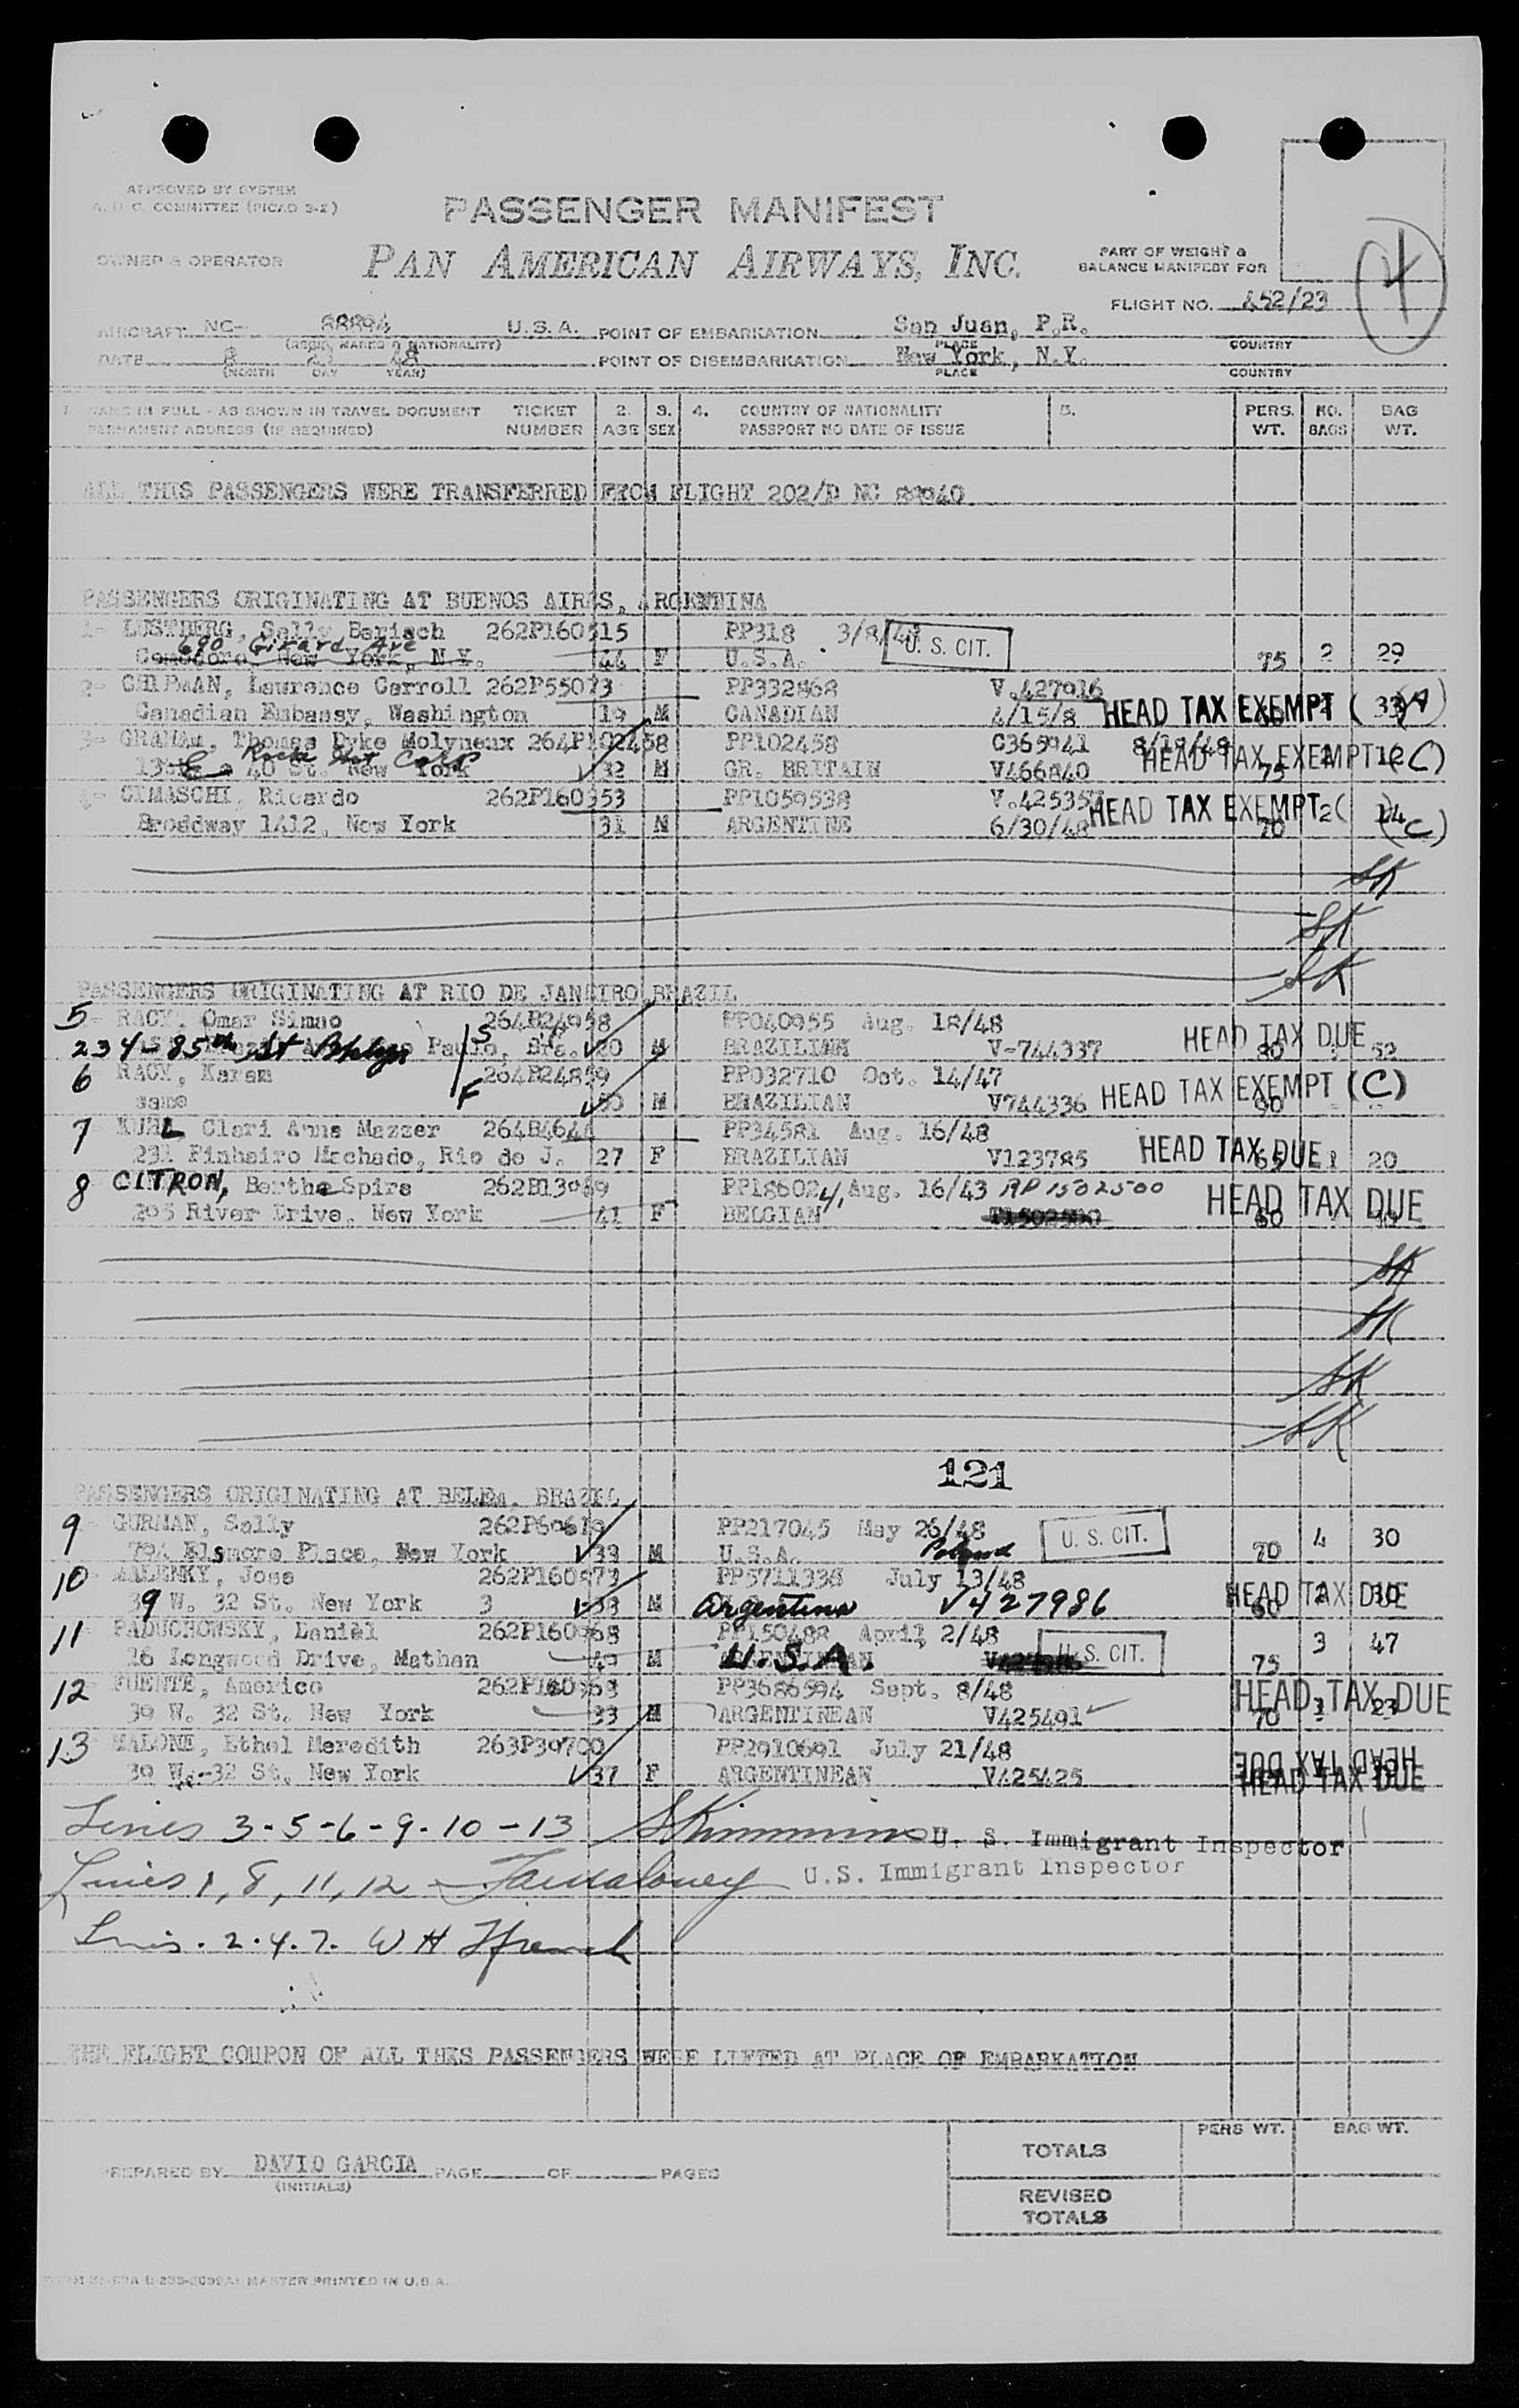 APPROVED BY SYSTEM
A.O.C. COMMITTEE (PICAO 3-2)
PASSENGER MANIFEST
OWNER & OPERATOR
PAN AMERICAN AIRWAYS, INC.
PART OF WEIGHT &
BALANCE MANIFEST FOR
4
FLIGHT NO. 452/23
AIRCRAFT NC- 88894 U.S.A. POINT OF EMBARKATION San Juan, P.R.
(REGN. MARKS & NATIONALITY) PLACE COUNTRY
DATE 8 21 48 POINT OF DISEMBARKATION New York, N.Y.
(MONTH DAY YEAR) PLACE COUNTRY
1. NAME IN FULL - AS SHOWN IN TRAVEL DOCUMENT TICKET 2. 3. 4. COUNTRY OF NATIONALITY 5. PERS. NO. BAG
PERMANENT ADDRESS (IF REQUIRED) NUMBER AGE SEX PASSPORT NO DATE OF ISSUE WT. BAGS WT.
ALL THIS PASSENGERS WERE TRANSFERRED FROM FLIGHT 202/D NC
PASSENGERS ORIGINATING AT BUENOS AIRES, ARGENTINA
1- LUSTBERG, Sally Barisch 262P160515 PP318 3/8/48 U. S. CIT.
690 Girard Ave
Comodoro, New York, N.Y. 44 F U.S.A. 75 2 29
2- CHIPMAN, Lawrence Carroll 262P55073 PP332868 V.427916
Canadian Embassy, Washington 19 M CANADIAN 4/15/8 HEAD TAX EXEMPT (A)
3- GRAHAM, Thomas Dyke Molyneux 264P102458 PP102458 C365941 8/18/48
40 St. New York 32 M GR. BRITAIN V466840 HEAD TAX EXEMPT (C) 75 12
4- CIMASCHI, Ricardo 262P160353 PP1059538 V.425357
Broadway 1412, New York 31 M ARGENTINE 6/30/48 HEAD TAX EXEMPT (C) 70 2 14
SK
SK
SK
PASSENGERS ORIGINATING AT RIO DE JANEIRO, BRAZIL
5 RACY, Omar Simao 264B24958 PP040955 Aug. 18/48
234-85th St Bklyn Paulo, Bra. 20 M BRAZILIAN V-744337 HEAD TAX DUE 80 52
6 RACY, Karam 264B24859 PP032710 Oct. 14/47
same 50 M BRAZILIAN V744336 HEAD TAX EXEMPT (C) 90
7 Clari Anna Mazzer 264B4644 PP34581 Aug. 16/48
231 Pinheiro Machado, Rio de J. 27 F BRAZILIAN V123785 HEAD TAX DUE 1 20
8 CITRON, Bertha Spira 262B13089 PP186024, Aug. 16/43 RP 1502500
205 River Drive, New York 41 F BELGIAN T1502500 HEAD TAX DUE 60
SK
SK
SK
SK
121
PASSENGERS ORIGINATING AT BELEM, BRAZIL
9 GURMAN, Solly 262P60619 PP217045 May 26/48 U. S. CIT.
794 Elsmere Place, New York 33 M U.S.A. Poland 70 4 30
10 MALENKY, Jose 262P160973 PP5711338 July 13/48
39 W. 32 St. New York 3 33 M Argentina V427986 HEAD TAX DUE 60 2 30
11 PADUCHOWSKY, Daniel 262P160968 PP150488 April 2/48 U. S. CIT. 3 47
26 Longwood Drive, Mathan 49 M U.S.A. 75
12 FUENTE, Americo PP3686594 Sept. 8/48
39 W. 32 St. New York 33 M ARGENTINEAN V425491 HEAD TAX DUE 70 3 23
13 MALONE, Ethel Meredith 263P39700 PP2910691 July 21/48
39 W.-32 St. New York 37 F ARGENTINEAN V425425 HEAD TAX DUE
HEAD TAX DUE
Lines 3-5-6-9-10-13 SKimmins U. S. Immigrant Inspector
Lines 1, 8, 11, 12 U.S. Immigrant Inspector
Lines. 2. 4. 7. W H French
THE FLIGHT COUPON OF ALL THIS PASSENGERS WERE LIFTED AT PLACE OF EMBARKATION
PERS WT. BAG WT.
TOTALS
PREPARED BY DAVID GARCIA PAGE OF PAGES
(INITIALS)
REVISED
TOTALS
MASTER PRINTED IN U.S.A.